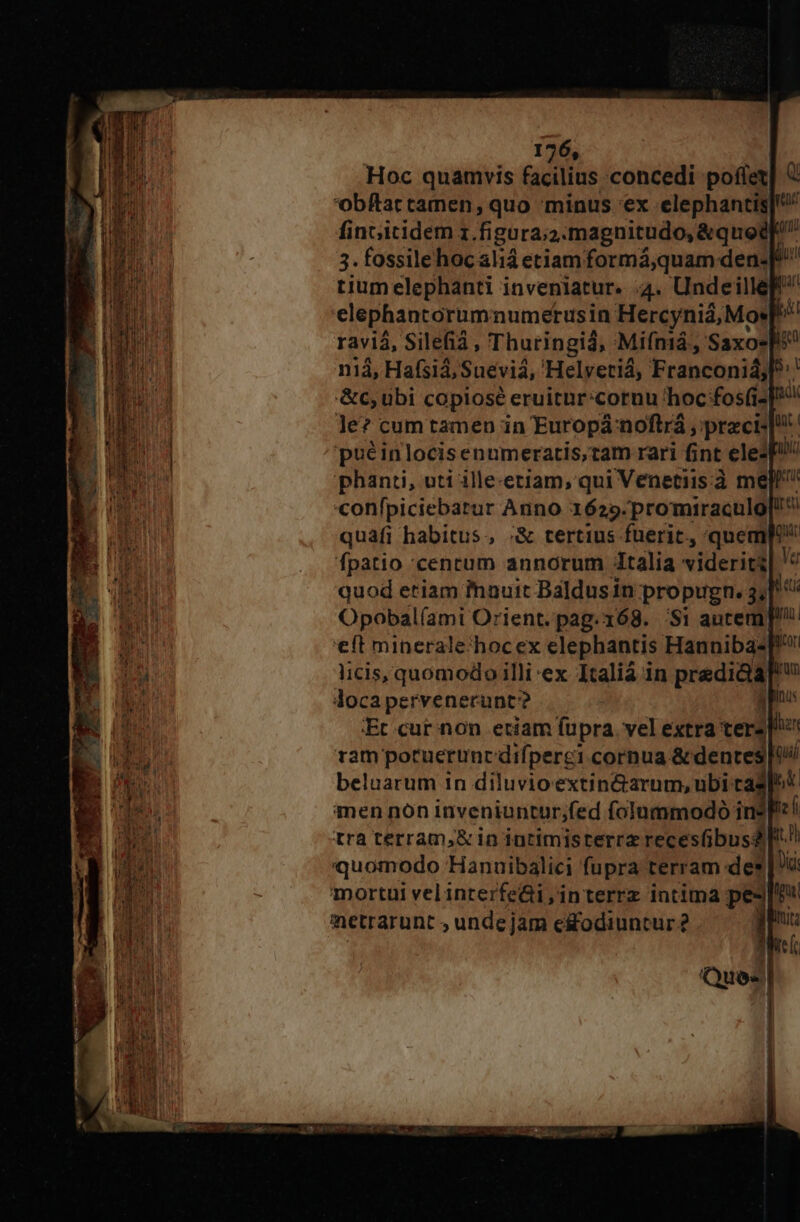 176,
Hoc quamvis facilius concedi posſet
obſtat tamen, quo minus ex elephantis
ſint, itidem 1. figura, 2. magnitudo, & quod
3. fossile hoc aliá etiam formá, quam den-
tium elephanti inveniatur. 4. Unde ille
elephantorum numerus in Hercyniá, Mo-
raviá, Sileſiá, Thuringiá, Miſniá, Saxo-
niá, Haſsiá, Sueviá, Helvetiá, Franconiá,
&c, ubi copiosè eruitur cornu hoc fosſi-
le? cum tamen in Europá noſtrá, præci-
puè in locis enumeratis, tam rari ſint ele-
phanti, uti ille etiam, qui Venetiis à me
conſpiciebatur Anno 1629. pro miraculo
quaſi habitus, & tertius fuerit, quem
ſpatio centum annorum Italia viderit:
quod etiam innuit Baldus in propugn. 3.
Opobalſami Orient. pag. 168. Si autem
eſt minerale hoc ex elephantis Hanniba-
licis, quomodo illi ex Italiá in prædicta
loca pervenerunt?
Et cur non etiam ſupra vel extra ter-
ram potuerunt diſpergi cornua & dentes
beluarum in diluvio extinctarum, ubi ta-
men non inveniuntur, ſed ſolummodò in-
tra terram, & in intimis terræ recesſibus?
quomodo Hannibalici ſupra terram de-
mortui vel interfecti, in terræ intima pe-
netrarunt, unde jam effodiuntur?
Quo-